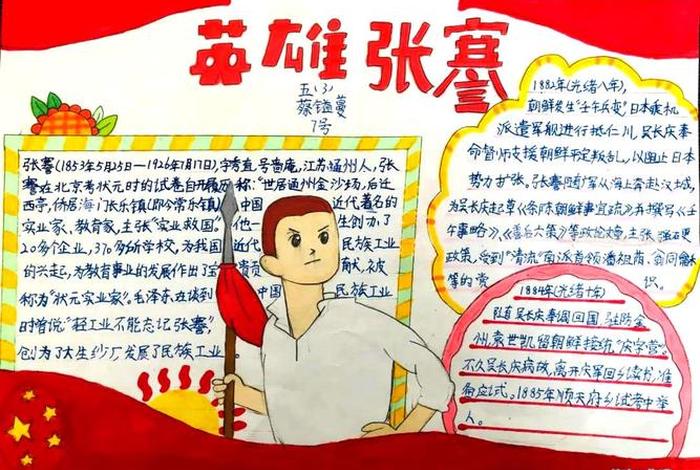 英雄张謇
五(3)
蔡镒蔓
7号
张謇(1853年5月25日—1926年7月17日),字季直,号啬庵,江苏通州人,张
謇在北京考状元时的试卷自开履历称:"世居通州金沙场,后迁
西亭,侨居海门长乐镇(即今常乐镇) 中国 近代著名的
实业家、教育家,主张"实业救国"。他一 生创办了
20多个企业,370多所学校,为我国近代 民族工业
的兴起,为教育事业的发展作出了宝贵贡 献,被
称为"状元实业家"。毛泽东在谈到 中国 民族工业
时曾说:"轻工业不能忘记张謇"
创办了大生纱厂发展了民族工业
1882年(光绪八年),
朝鲜发生"壬午兵变",日本乘机
派遣军舰进行抵仁川,吴长庆奉
命督师支援朝鲜平定叛乱,以阻止日本
势力扩张。张謇随庆军从海上奔赴汉城,
为吴长庆起草《条陈朝鲜事宜疏》并撰写《壬
午事略》、《善后六策》等政论文章,主张强硬
政策,受到"清流"南派首领潘祖荫、翁同龢
等的赏 识。
1884年(光绪十年)
随吴长庆奉调回国,驻防金
州,袁世凯留朝鲜接统"庆字营"。
不久吴长庆病故,离开庆军回乡读书,准
备应试。1885年顺天府乡试考中举
人。